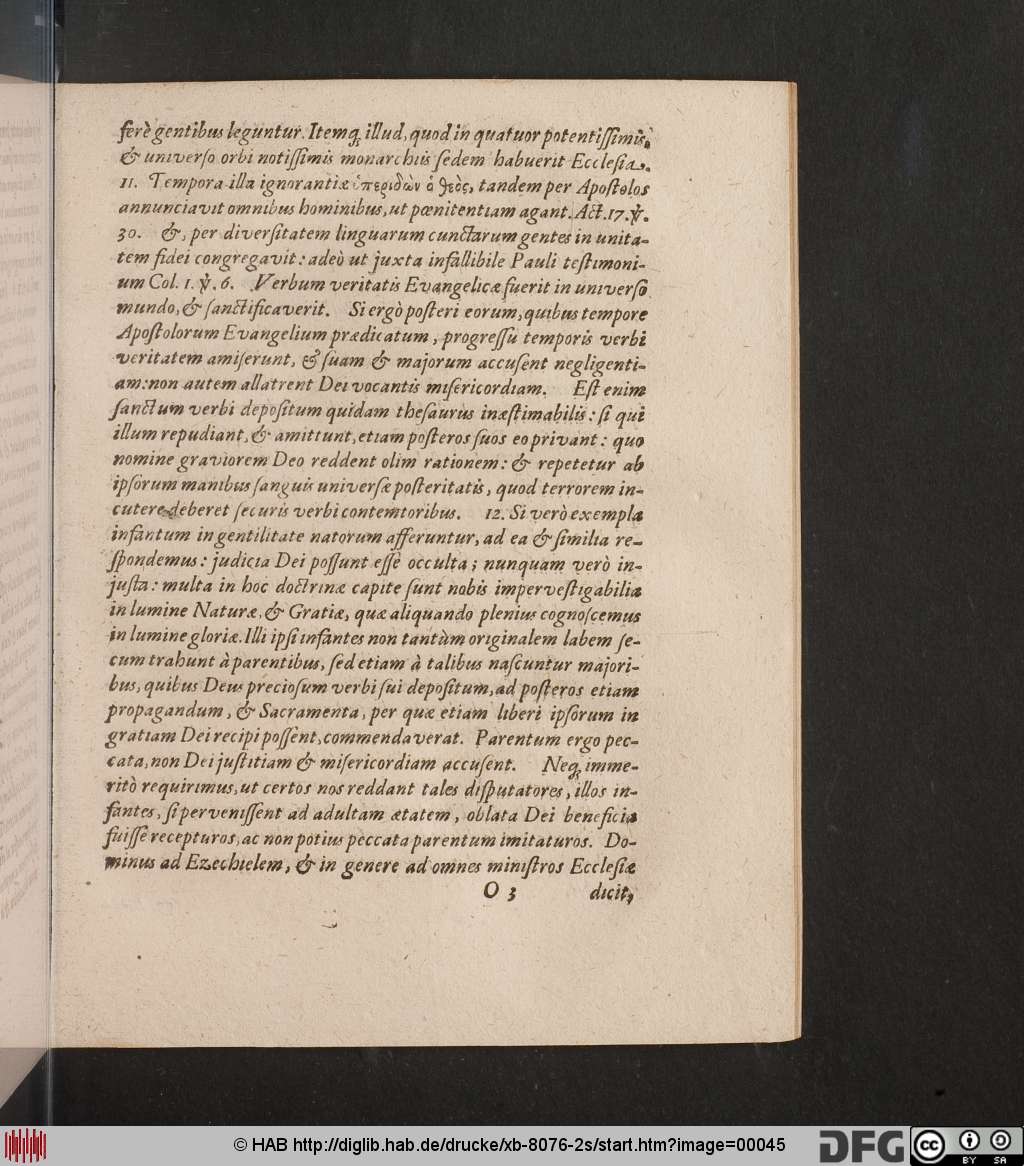 ferè gentibus leguntur. Itemq́; illud, quod in quatuor potentißimis,
& universo orbi notißimis monarchiis sedem habuerit Ecclesia.
11. Tempora illa ignorantiæ ὑπεριδὼν ὁ θεὸς, tandem per Apostolos
annunciavit omnibus hominibus, ut pœnitentiam agant. Act. 17. ℣.
30. &, per diversitatem linguarum cunctarum gentes in unita-
tem fidei congregavit: adeò ut juxta infallibile Pauli testimoni-
um Col. 1. ℣. 6. Verbum veritatis Evangelicæ fuerit in universo
mundo, & sanctificaverit. Si ergò posteri eorum, quibus tempore
Apostolorum Evangelium prædicatum, progressu temporis verbi
veritatem amiserunt, & suam & majorum accusent negligenti-
am: non autem allatrent Dei vocantis misericordiam. Est enim
sanctum verbi depositum quidam thesaurus inæstimabilis: si qui
illum repudiant, & amittunt, etiam posteros suos eo privant: quo
nomine graviorem Deo reddent olim rationem: & repetetur ab
ipsorum manibus sanguis universæ posteritatis, quod terrorem in-
cutere deberet securis verbi contemtoribus. 12. Si verò exempla
infantum in gentilitate natorum afferuntur, ad ea & similia re-
spondemus: judicia Dei possunt esse occulta; nunquam verò in-
justa: multa in hoc doctrinæ capite sunt nobis impervestigabilia
in lumine Naturæ, & Gratiæ, quæ aliquando plenius cognoscemus
in lumine gloriæ. Illi ipsi infantes non tantùm originalem labem se-
cum trahunt à parentibus, sed etiam à talibus nascuntur majori-
bus, quibus Deus preciosum verbi sui depositum, ad posteros etiam
propagandum, & Sacramenta, per quæ etiam liberi ipsorum in
gratiam Dei recipi possent, commendaverat. Parentum ergo pec-
cata, non Dei justitiam & misericordiam accusent. Neq́; imme-
ritò requirimus, ut certos nos reddant tales disputatores, illos in-
fantes, si pervenissent ad adultam ætatem, oblata Dei beneficia
fuisse recepturos, ac non potius peccata parentum imitaturos. Do-
minus ad Ezechielem, & in genere ad omnes ministros Ecclesiæ
O 3 dicit,
© HAB http://diglib.hab.de/drucke/xb-8076-2s/start.htm?image=00045
DFG
cc BY SA